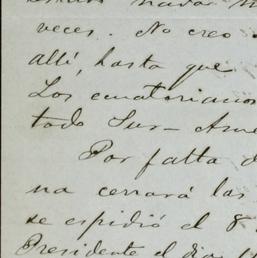 nada
veces. No creo
allí, hasta que
Los ecuatorianos
todo Sur-Ame
Por falta d
na cerrará las
se espidió el 8
Presidente el dia